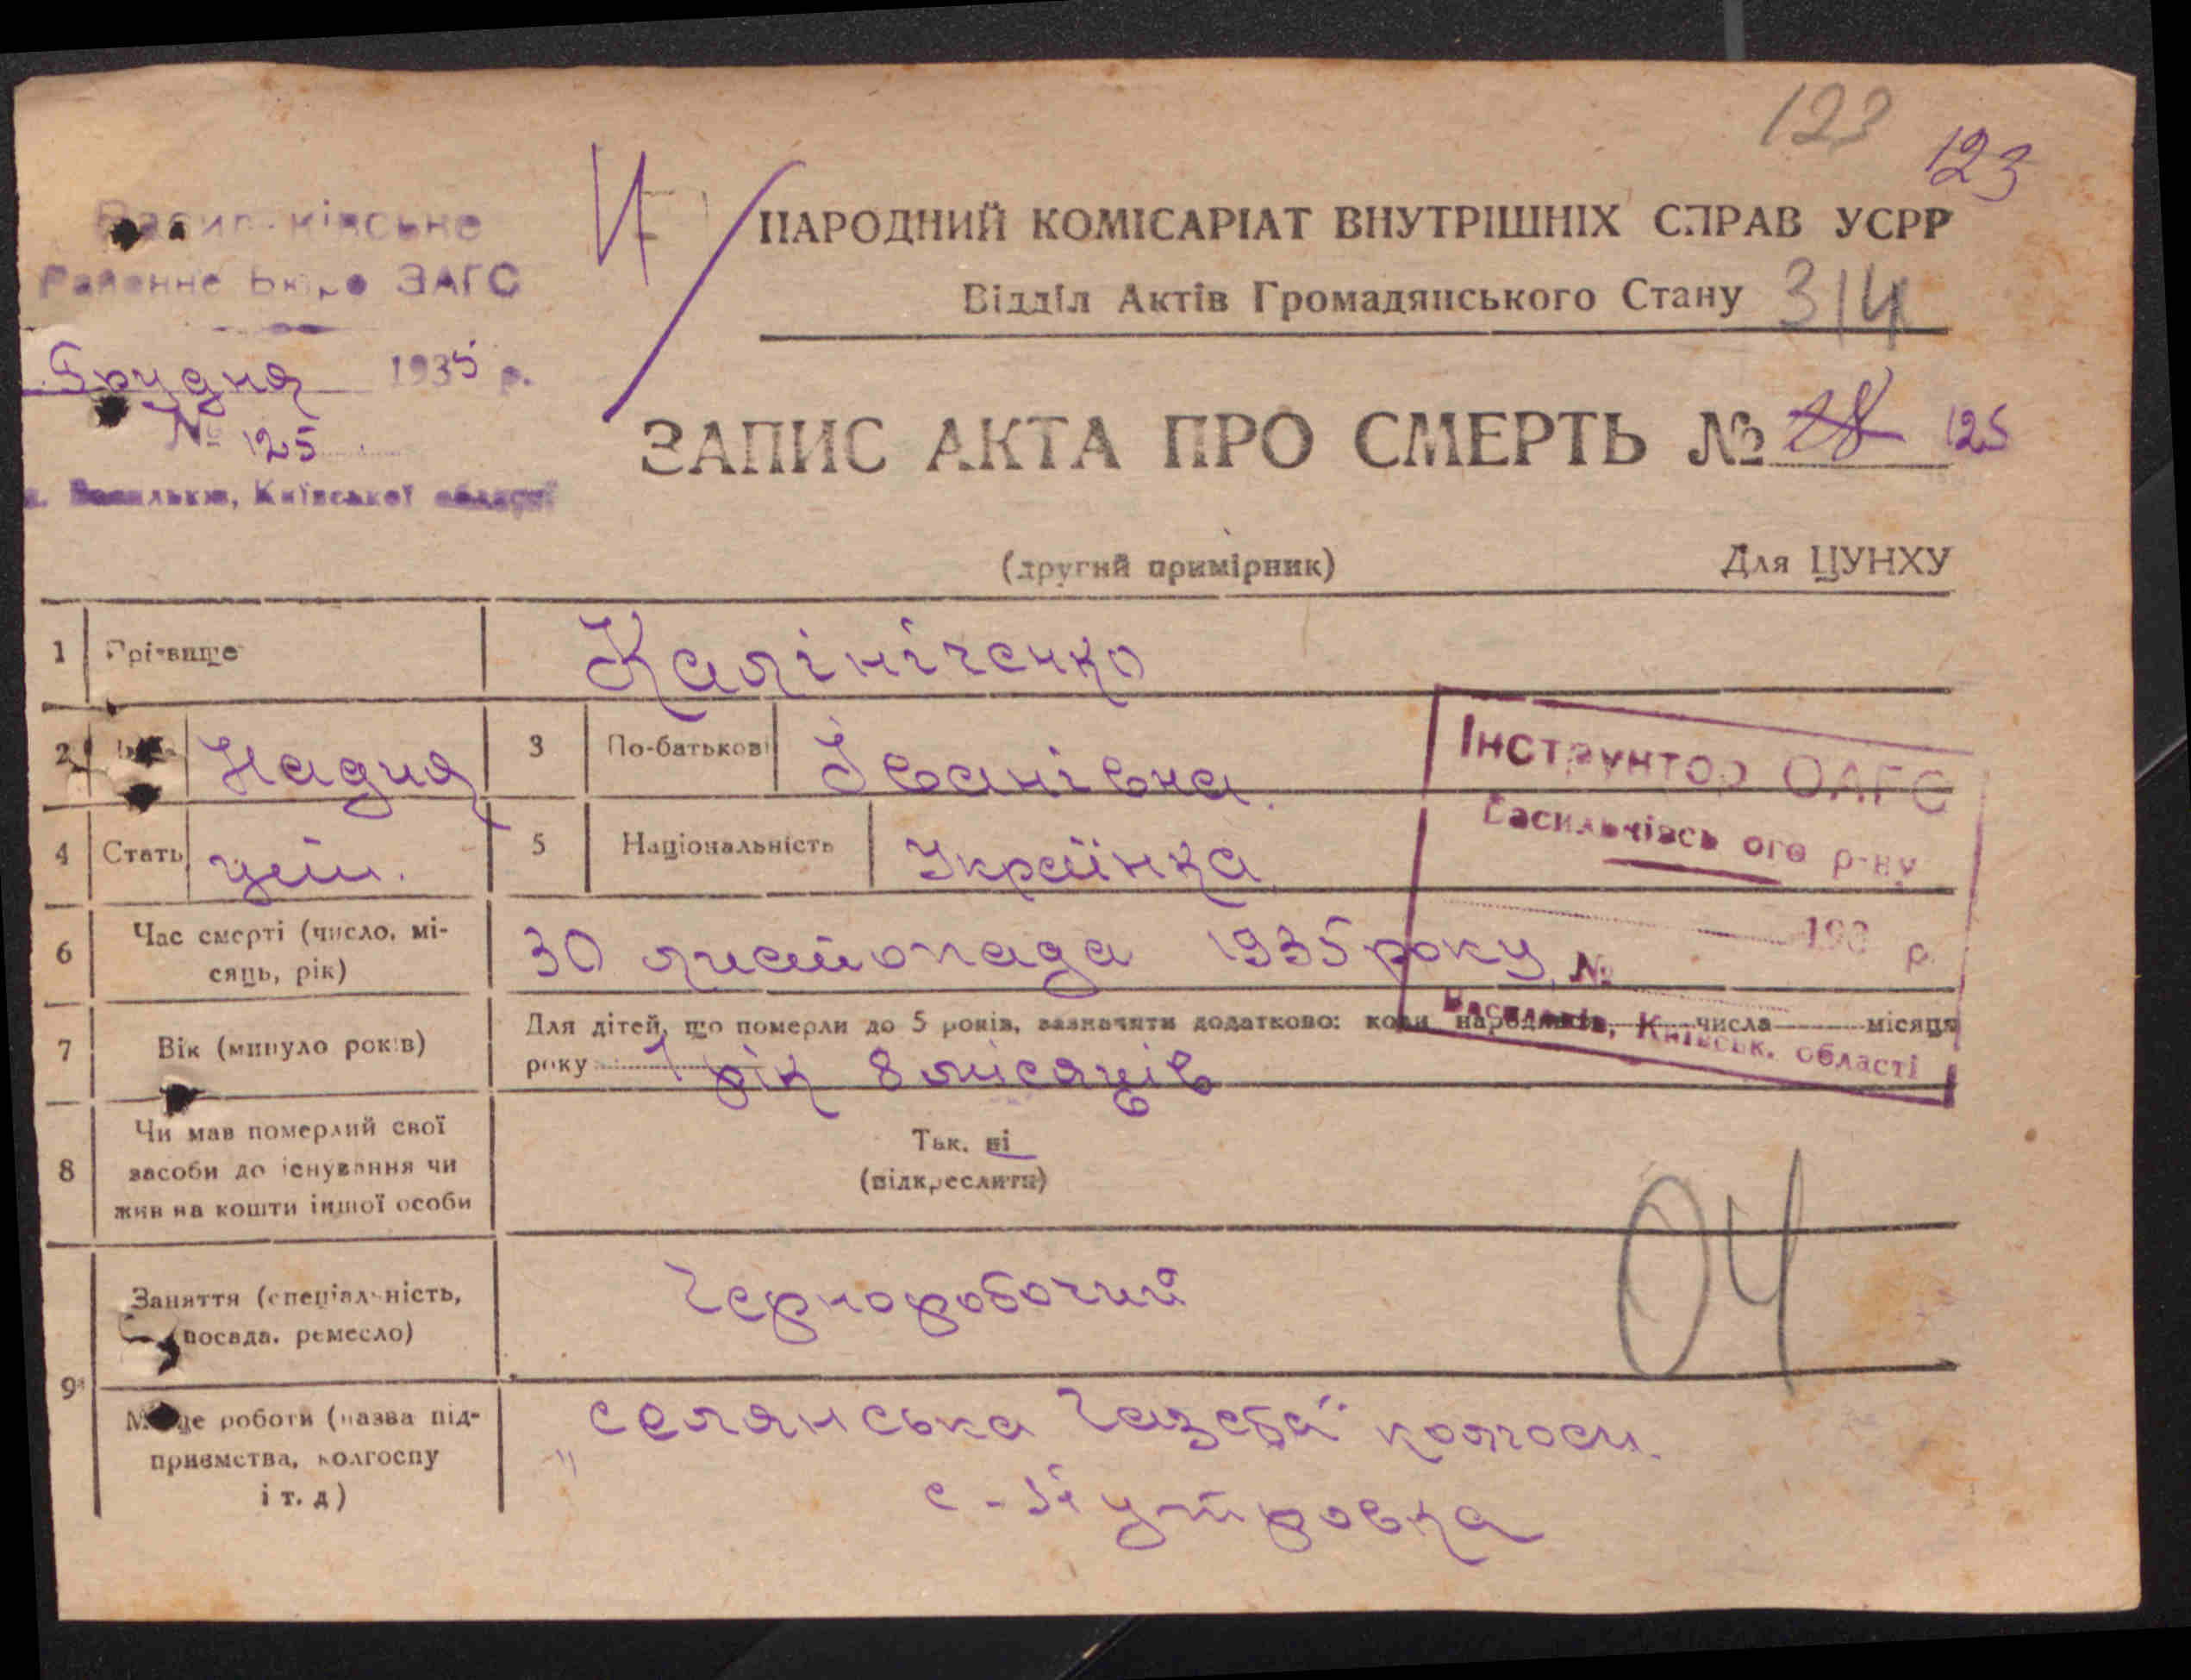 123
123
Васильківське
Районне Бюро ЗАГС
Грудня 1935 р.
№ 125
м. Васильків, Київської області
НАРОДНИЙ КОМІСАРІАТ ВНУТРІШНІХ СПРАВ УСРР
Відділ Актів Громадянського Стану 314
ЗАПИС АКТА ПРО СМЕРТЬ № 28 125
(другий примірник) Для ЦУНХУ
1 Прізвище Калініченко
2 Надия 3 По-батькові Іванівна
4 Стать 5 Національність Українка
Інструктор ОАГС
Васильківського р-ну
193 р.
№
Васильків, Київськ. області
6 Час смерті (число, мі-
сяць, рік) 30 листопада 1935 року
7 Вік (минуло років) Для дітей, що померли до 5 років, зазначити додатково: коли народились числа місяця
року 1 рік 8 місяців
8 Чи мав померлий свої
засоби до існування чи
жив на кошти іншої особи
Так. ні
(підкреслити)
04
9 Заняття (спеціальність,
посада, ремесло) Черноробочий
Місце роботи (назва під-
приємства, колгоспу
і т. д)
„Селянська Газета" колгосп.